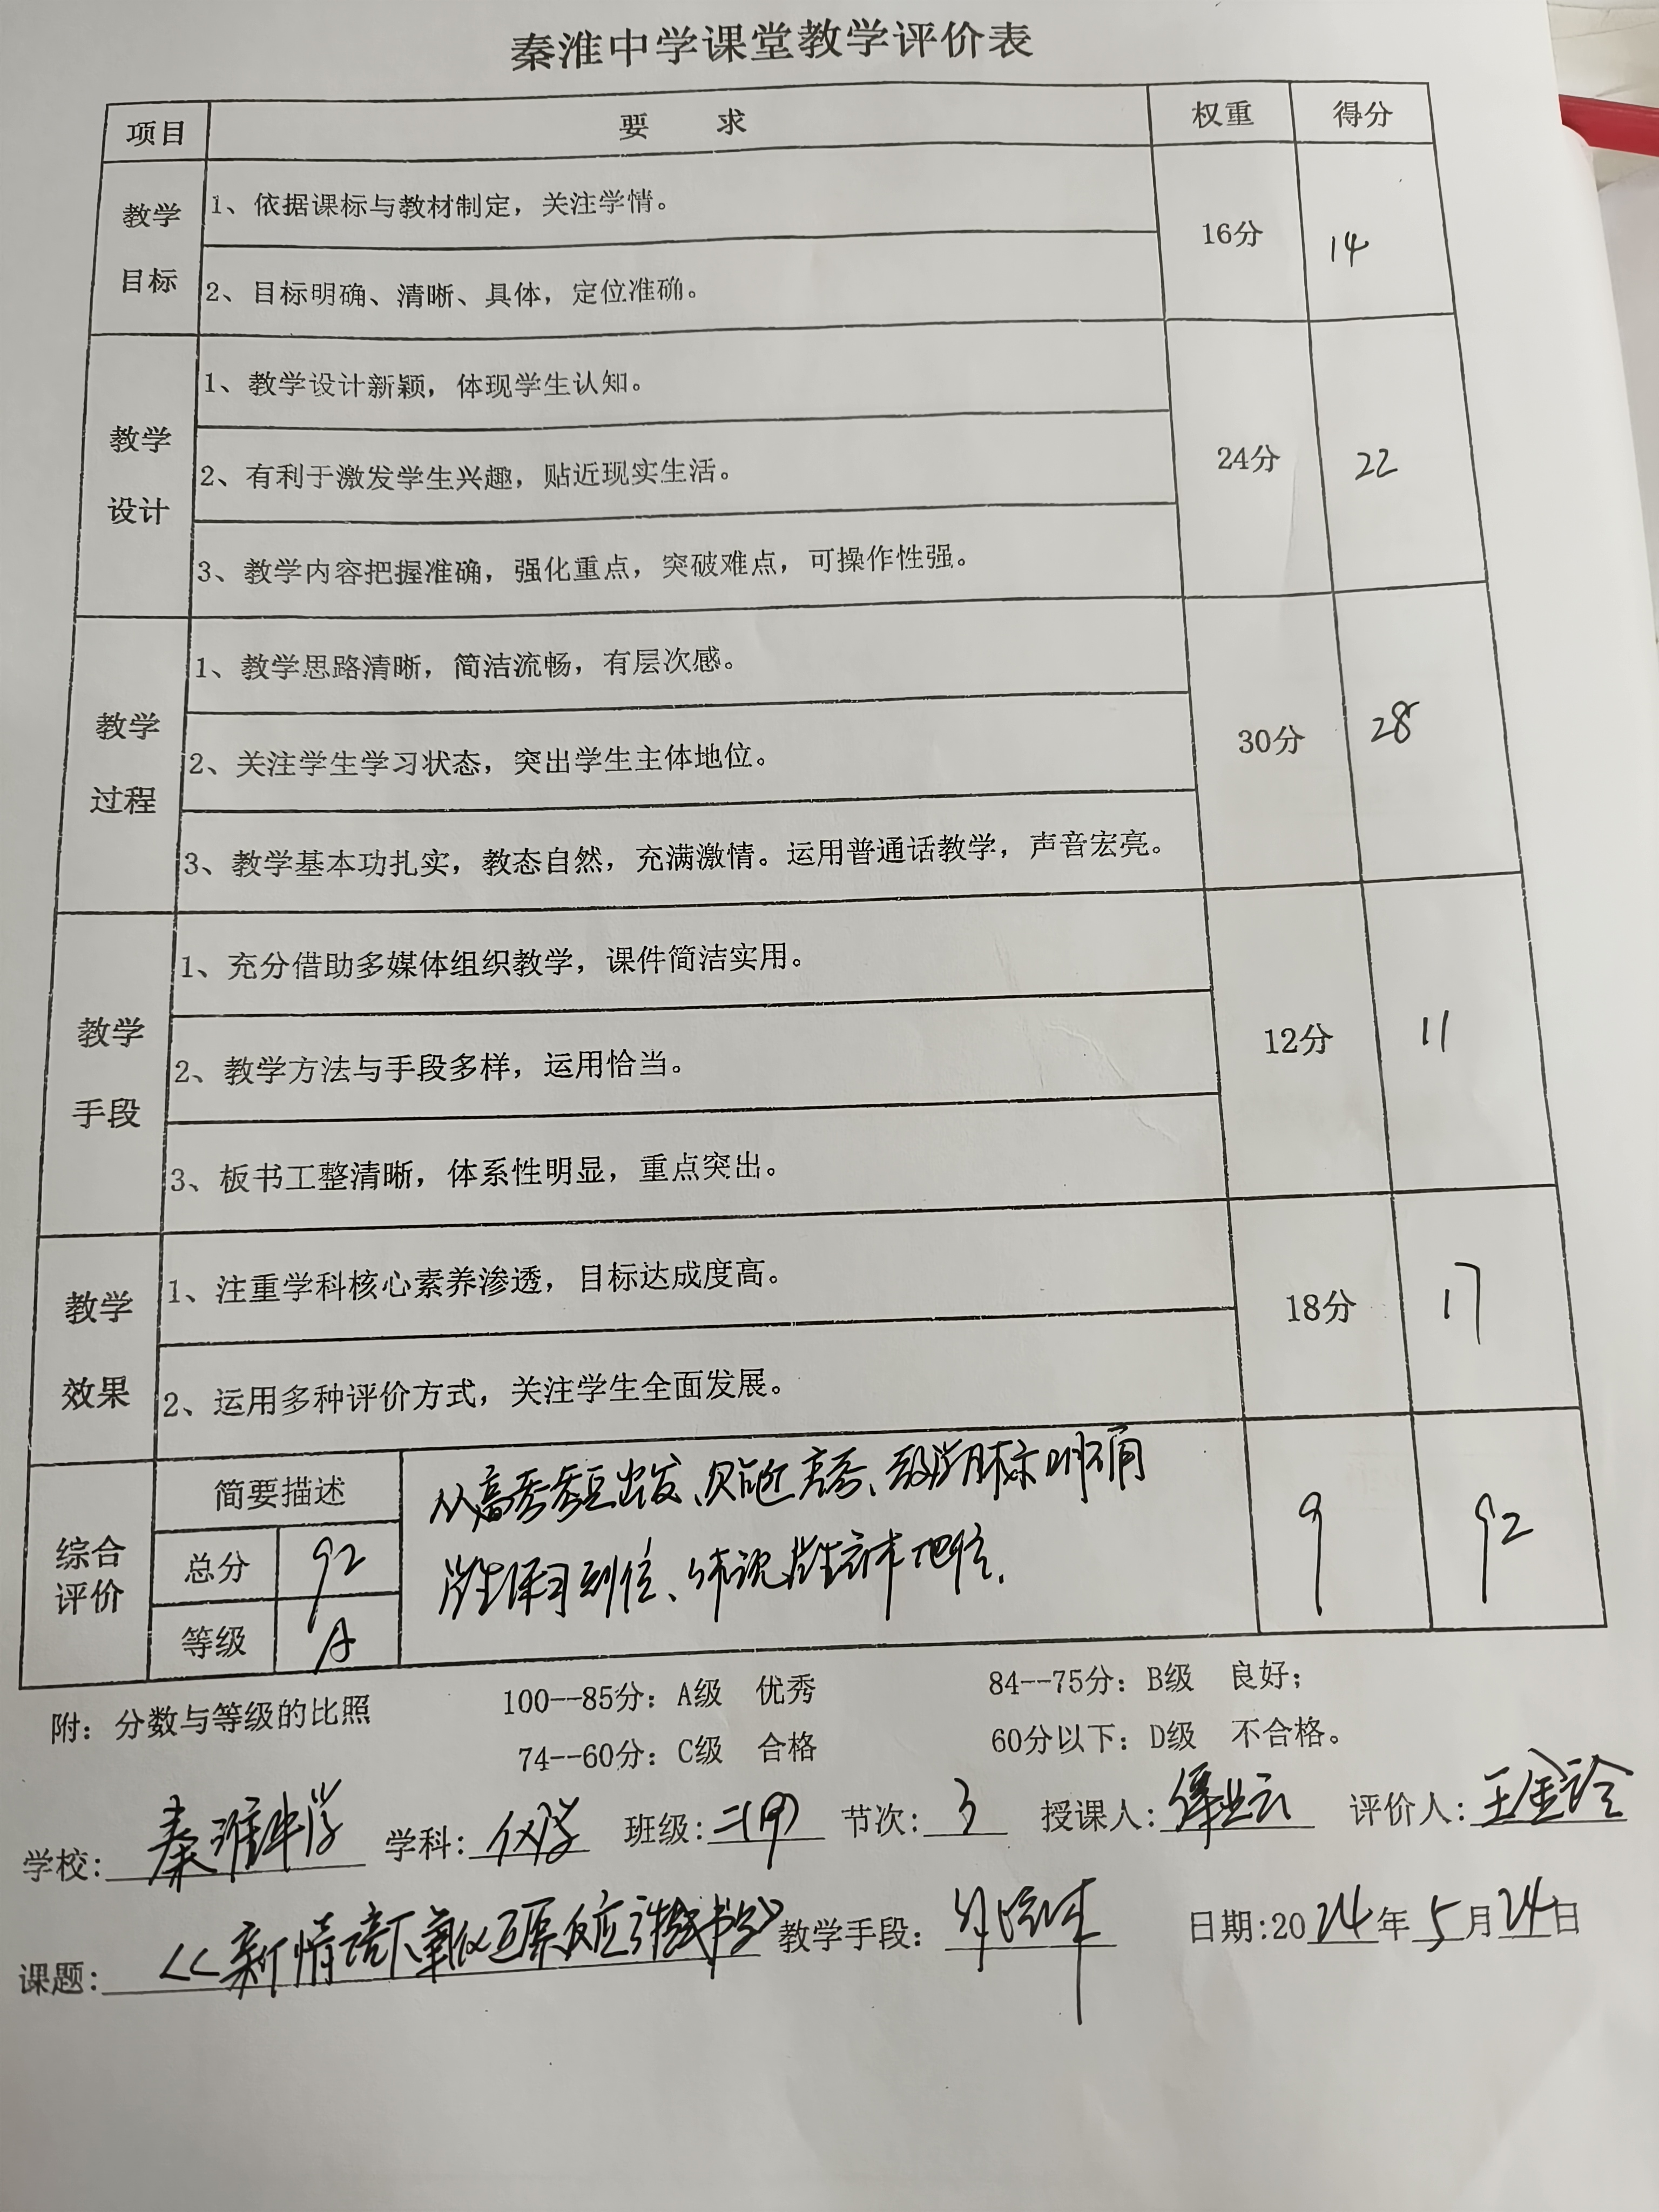 秦淮中学课堂教学评价表
项目 要 求 权重 得分
教学目标 16分 14
1、依据课标与教材制定，关注学情。
2、目标明确、清晰、具体，定位准确。
教学设计 24分 22
1、教学设计新颖，体现学生认知。
2、有利于激发学生兴趣，贴近现实生活。
3、教学内容把握准确，强化重点，突破难点，可操作性强。
教学过程 30分 28
1、教学思路清晰，简洁流畅，有层次感。
2、关注学生学习状态，突出学生主体地位。
3、教学基本功扎实，教态自然，充满激情。运用普通话教学，声音宏亮。
教学手段 12分 11
1、充分借助多媒体组织教学，课件简洁实用。
2、教学方法与手段多样，运用恰当。
3、板书工整清晰，体系性明显，重点突出。
教学效果 18分 17
1、注重学科核心素养渗透，目标达成度高。
2、运用多种评价方式，关注学生全面发展。
综合评价 简要描述 9 92
从高考出发、贴近高考、教学目标明确
学生练习到位、体现学生主体地位.
总分 92
等级 A
附：分数与等级的比照 100--85分：A级 优秀 84--75分：B级 良好；
74--60分：C级 合格 60分以下：D级 不合格。
学校: 秦淮中学 学科: 化学 班级: 节次: 3 授课人: 评价人: 王金玲
课题: 《新情境下氧化还原反应书写》 教学手段: 日期:2024年5月24日